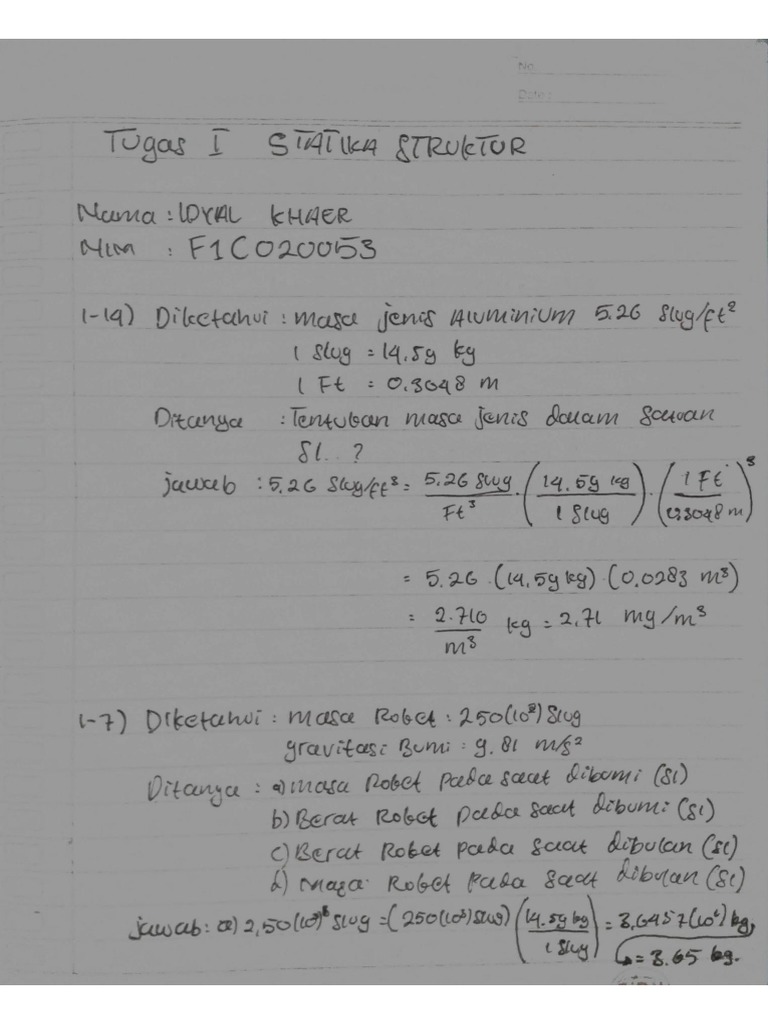 No.
Date:
Tugas I STATIKA STRUKTUR
Nama : LOYAL KHAER
Nim : F1C020053
1-14) Diketahui : masa jenis Aluminium 5.26 slug/ft³
1 slug = 14.59 kg
1 Ft = 0.3048 m
Ditanya : Tentukan masa jenis dalam satuan
SI..?
jawab : 5.26 slug/ft³ = 5.26 slug / Ft³ · (14.59 kg / 1 slug) · (1 Ft / 0.3048 m)³
= 5.26 · (14.59 kg) · (0.0283 m³)
= 2.710 / m³ kg = 2.71 mg/m³
1-7) Diketahui : masa Roket : 250(10³) slug
gravitasi Bumi : 9.81 m/s²
Ditanya : a) masa Roket pada saat dibumi (SI)
b) Berat Roket pada saat dibumi (SI)
c) Berat Roket pada saat dibulan (SI)
d) Masa Roket pada saat dibulan (SI)
jawab : a) 2,50(10³) slug = (250(10³) slug) (14.59 kg / 1 slug) = 3,6457(10⁶) kg,
= 3.65 kg.